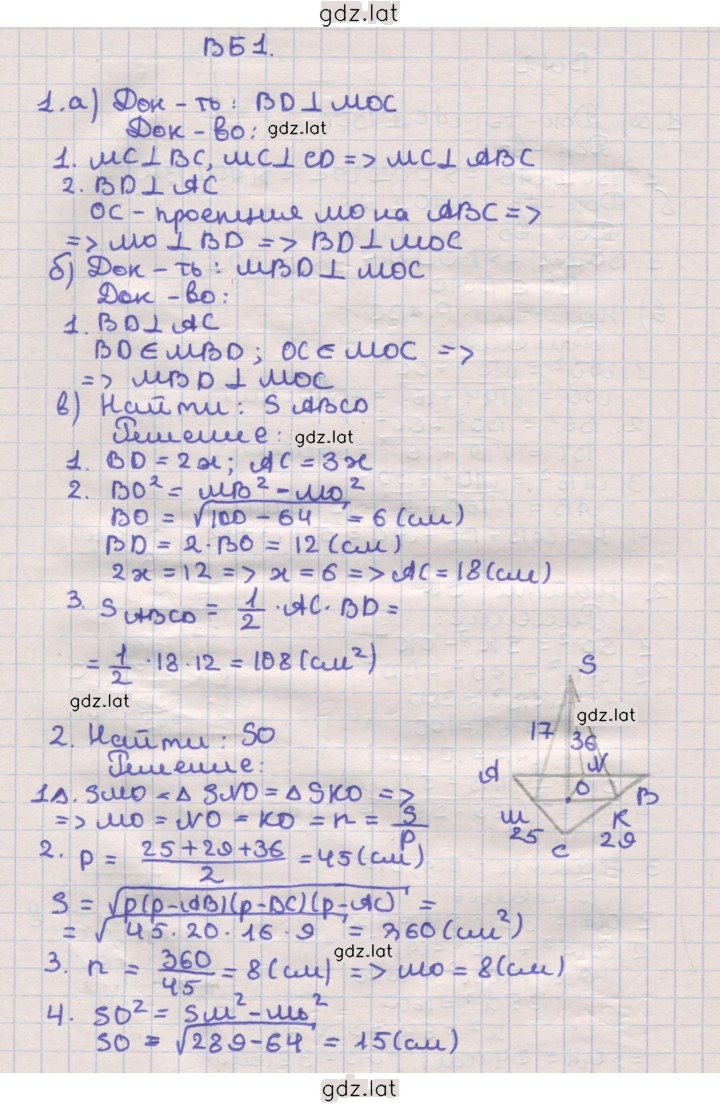 gdz.lat
ВБ1.
1.а) Док-ть: BD⊥MOC
Док-во: gdz.lat
1. MC⊥BC, MC⊥CD => MC⊥ABC
2. BD⊥AC
OC - проекция MO на ABC =>
=> MO⊥BD => BD⊥MOC
б) Док-ть: MBD⊥MOC
Док-во:
1. BD⊥AC
BD∈MBD; OC∈MOC =>
=> MBD⊥MOC
в) Найти: S ABCD
Решение: gdz.lat
1. BD = 2x; AC = 3x
2. BO² = MB² - MO²
BO = √100 - 64 = 6 (см)
BD = 2·BO = 12 (см)
2x = 12 => x = 6 => AC = 18 (см)
3. S ABCD = 1/2 · AC · BD =
= 1/2 · 18 · 12 = 108 (см²)
gdz.lat
2. Найти: SO
Решение:
1Δ. SMO = Δ SNO = Δ SKO =>
=> MO = NO = KO = r = S/P
2. P = (25+29+36)/2 = 45 (см)
S = √p(p-AB)(p-BC)(p-AC) =
= √45·20·16·9 = 360 (см²)
gdz.lat
3. r = 360/45 = 8 (см) => MO = 8 (см)
4. SO² = SM² - MO²
SO = √289-64 = 15 (см)
S
gdz.lat
17
36
A
N
O
B
M
K
25
29
C
gdz.lat